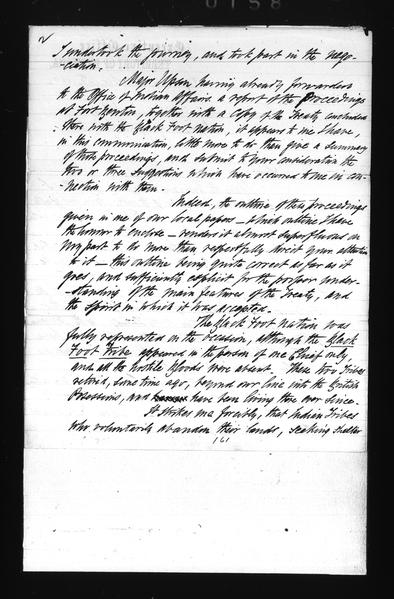 0158
2
I undertook the journey, and took part in the nego-
-ciation.
Major Upson, having already forwarded
to the Office of Indian Affairs a report of the Proceedings
at Fort Benton, together with a Copy of the Treaty concluded
there with the Black Foot Nation, it appears to me I have,
in this communication, little more to do than give a Summary
of those proceedings, and submit to your consideration the
two or three suggestions which have occurred to me in con-
nection with them.
Indeed, the outline of these proceedings
given in one of our local papers — which outline I have
the honor to enclose — renders it almost superfluous on
my part to do more than respectfully invite your attention
to it — this outline being quite correct as far as it
goes, and sufficiently explicit for the proper under-
-standing of the main features of the Treaty, and
the spirit in which it was accepted.
The Black Foot Nation was
fully represented on the occasion, although the Black
Foot Tribe appeared in the person of one Chief only,
and all the hostile Bloods were absent. These two Tribes
retired, some time ago, beyond our line into the British
Possessions, and have been living there ever since.
It strikes me forcibly, that Indian Tribes
who voluntarily abandon their lands, seeking shelter